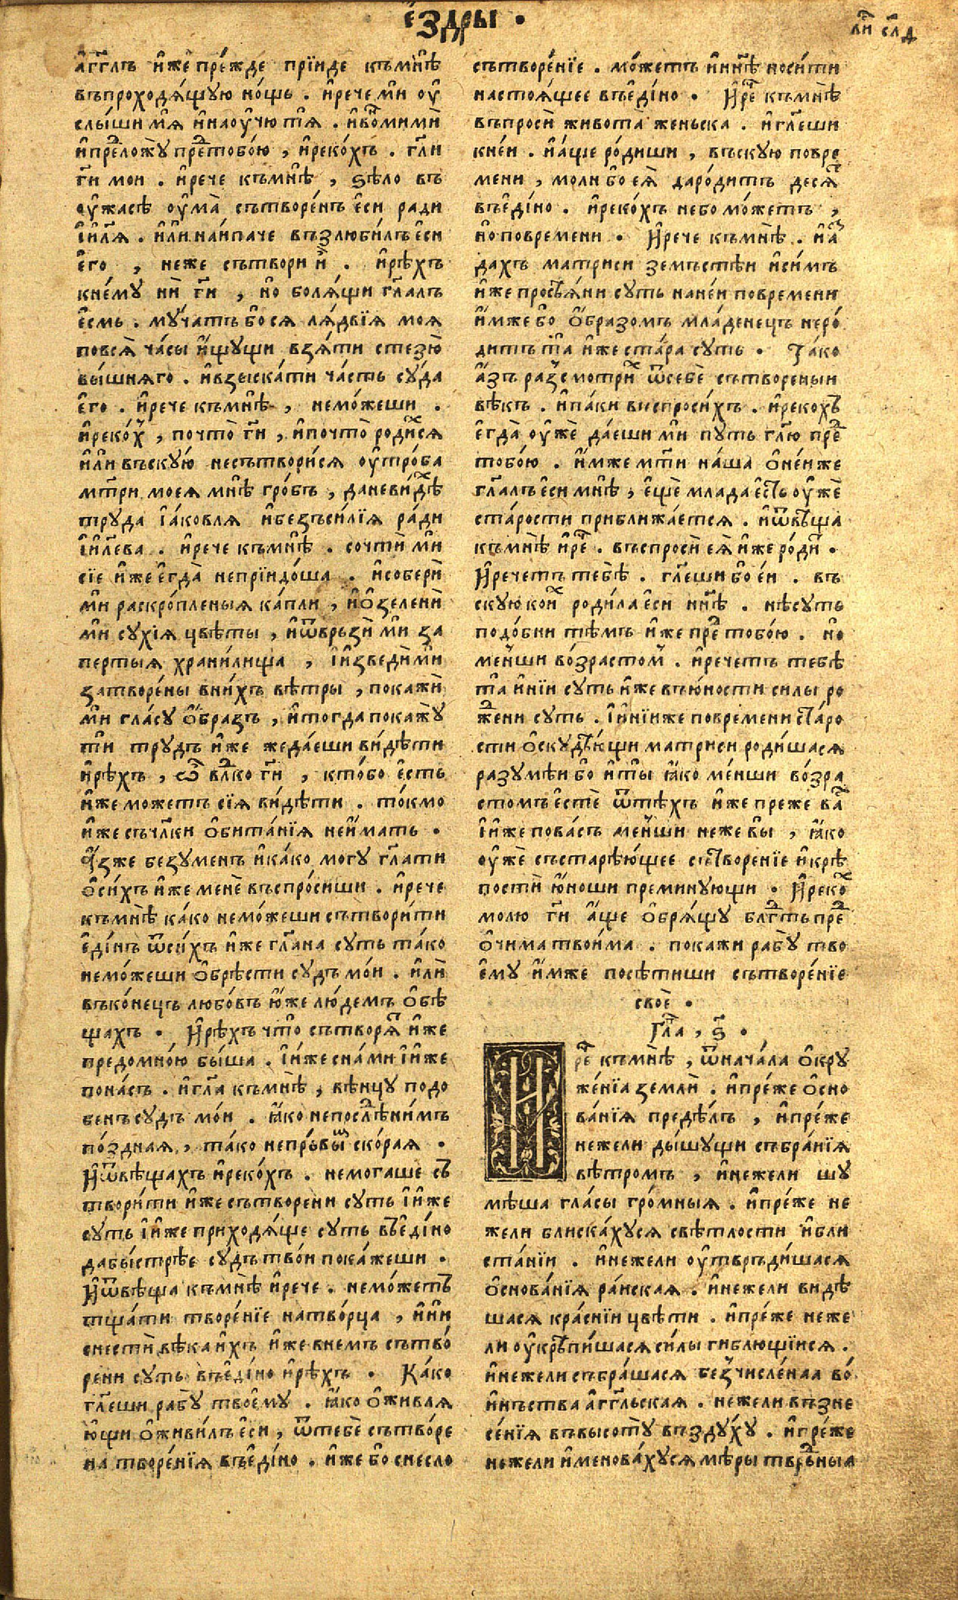 е҆здры .
лⷭ҇и сл҃д
а҆гг҃лъ и҆́же пре́жде прїи́де къмнѣ̀
въпроходѧ́щꙋю но́щь . и҆рече́ ми оу҆
слы́ши мѧ̀ и҆наꙋ҆чю́ тѧ . и҆во́ⷥмими
и҆преⷣложꙋ̀ преⷣтобо́ю , и҆реко́хъ . гл҃и
гⷭ҇и мои . и҆рече къмнѣ̀ , ѕѣло въ
оу҆́жасѣ оу҆ма̀ сътворе́нъ є҆си ради
і҆и҃лѧ . и҆лѝ наи́паче възлюби́лъ є҆си
є҆го , неже сътвори и҆̀ . и҆рѣхъ
кнему нѝ гⷭ҇и , но болѧ́щи гл҃алъ
є҆смь . мꙋ́чатъ босѧ лѧ́двїѧ моѧ
повсѧ̀ ча́сы и҆́щꙋщи взѧ́ти стезю̀
вы́шнѧго . и҆взыска́ти ча́сть сꙋда̀
є҆го . и҆рече къмнѣ̀ , немо́жеши .
и҆реко́ⷯ , почто̀ гⷭ҇и , и҆почто̀ роди́ⷯсѧ
и҆лѝ въскꙋ́ю несътвори́сѧ оу҆тро́ба
мт҃ри моеѧ мнѣ̀ гро́бъ , даневи́ⷤдѣ
трꙋда̀ і҆а́ковлѧ и҆безъси́лїѧ ра́ди
і҆и҃лева . и҆рече къмнѣ̀ . сочтѝ ми
сїе и҆́же є҆гда̀ неприидо́ша . и҆соберѝ
ми раскро́пленыѧ ка́пли , и҆ѡ҆зеленѝ
ми сꙋхїѧ цвѣ́ты , и҆ѿврьзѝ ми за
пертыѧ храни́лища , і҆и҆зведѝ ми
затворе́ны вни́хъ вѣ́тры , покажѝ
ми гла́сꙋ ѻ҆́бразъ , и҆тогда покажꙋ̀
ти трꙋдъ и҆́же жeда́еши ви́дѣти
и҆рѣхъ , ѽ влⷣко гⷭ҇и , кто́бо є҆сть
и҆́же можетъ сїѧ ви́дѣти . то́кмо
и҆́же съчл҃ки ѻ҆бита́нїѧ неи҆́мать .
а҆́зъже безꙋменъ и҆ка́ко могꙋ гл҃ати
ѻ҆си́хъ и҆́же менѐ въспро́сиши . и҆рече
къмнѣ̀ ка́ко немо́жеши сътвори́ти
є҆ди́нъ ѿси́хъ и҆́же гл҃ана сꙋть та́ко
немо́жеши ѻ҆брѣ́сти сꙋдъ мо́и . и҆лѝ
въко́нець любо́въ ю҆́же лю́демъ ѻ҆бѣ
щахъ . И҆рѣхъ что̀ сътворѧ́ⷮ и҆́же
предомно́ю бы́ша . і҆и҆́же сна́ми і҆и҆́же
пона́съ . и҆гл҃а къмнѣ̀ , вѣ́нцꙋ подо
бенъ сꙋдъ мо́и . ꙗ҆́ко непослѣⷣнимъ
по́зднаѧ , та́ко непрьвы́ⷨ ско́раѧ .
И҆ѿвѣща́хъ и҆реко́хъ . немогаше съ
твори́ти и҆́же сътворени сꙋть і҆и҆́же
сꙋть і҆и҆́же приходѧ́ще сꙋть въе҆ди́но
дабы́стрѣе сꙋдъ тво́и пока́жеши .
И҆ѿвѣща къмнѣ̀ и҆рече . немо́жетъ
тща́ти творе́нїе натво́рца , и҆ни
снестѝ вѣка и҆́хъ и҆́же внемъ сътво́
рени сꙋть въе҆ди́но и҆рѣхъ . Ка́ко
гл҃еши рабꙋ̀ твоемꙋ . ꙗ҆́ко ѻ҆живлѧ
ю҆щи ѻ҆живи́лъ є҆си , ѿтебѐ сътво́ре
на творе́нїѧ въе҆ди́но . и҆́же бо снесло
сътворе́нїе . мо́жетъ и҆нн҃ѣ носи́ти
настоѧ́щее въе҆ди́но . И҆реⷱ҇ къмнѣ̀
въпросѝ живота̀ же́ньска . и҆гл҃еши
кне́и . и҆а҆ще ро́диши , въскꙋю повре
мени , моли бо еѧ̀ даро́дитъ десѧⷮ
въе҆ди́но . и҆реко́хъ небо мо́жетъ ,
но повремени . И҆рече къмнѣ̀ . и҆а҆́ⷥ
дахъ матриси земьстѣ́и и҆си́мъ
и҆́же просѣ́ѧни сꙋть нане́и повремени
и҆́мже бо ѻ҆́бразомъ мла́денець неро́
дитъ та̀ и҆́же ста́ра сꙋть . Та́ко
а҆́зъ разⸯсмотри́ⷯ ѿсебѐ сътвореныи
вѣкъ . и҆па́ки въспроси́хъ . и҆рекохъ
є҆гда̀ оу҆жѐ да́еши ми пꙋть гл҃ю преⷣ
тобо́ю . и҆́мже мт҃и на́ша ѻ҆не́и же
гл҃алъ є҆си мнѣ̀ , є҆щѐ млада є҆́сть оу҆жѐ
ста́рости приближа́етсѧ . и҆ѿвѣща
къмнѣ̀ и҆реⷱ҇ . въспросѝ еѧ̀ и҆́же ро́диⷮ .
И҆речетъ тебѣ̀ . гл҃еши бо є҆́и . въ
скꙋю коиⷯ роди́ла є҆си нн҃ѣ . нѣсꙋть
подо́бни тѣмъ и҆́же преⷣ тобо́ю . но
ме́нши во́зрастоⷨ . и҆речетъ тебѣ̀
та̀ и҆ні́и сꙋть и҆́же въю҆ности силы ро
жⷣени сꙋть . і҆и҆нїи́же повремени ста́ро
сти ѻ҆скꙋдѣю҆щи матриси родишасѧ
разꙋмѣ́и бо и҆ты̀ ꙗ҆́ко ме́нши во́зра
стомъ є҆стѐ ѿтѣхъ и҆́же преже ваⷭ
і҆и҆́же пова́съ ме́нши неже вы̀ , ꙗ҆́ко
оу҆жѐ състарѣю҆щее сътворе́нїе и҆крѣ
пости ю҆́ноши преминꙋющи . И҆реко́ⷯ
молю гⷭ҇и а҆́ще ѻ҆брѧ́щꙋ блгⷣть преⷣ
ѻ҆чи́ма твои́ма . покажи рабꙋ̀ тво
є҆мꙋ и҆́мже посѣтиши сътворе́нїе
своѐ .
Гла , ѕ҃ .
И҆реⷱ҇ къмнѣ̀ , ѿнача́ла ѻ҆крꙋ
же́нїа землѝ . и҆пре́же ѻ҆сно
ва́нїѧ предѣ́лъ , и҆пре́же
нежели дышꙋщи събра́нїѧ
вѣ́тромъ , и҆нежели шꙋ
мѣша гла́сы гро́мныѧ . и҆пре́же не
жели блиска́хꙋсѧ свѣ́тлости и҆бли
ста́нїи . и҆нежели оу҆твръди́шасѧ
ѻ҆снова́нїѧ ра́искаѧ . и҆нежели видѣ
шасѧ кра́снїи цвѣ́ти . и҆пре́же неже
ли оу҆крѣпи́шасѧ си́лы гиблющїисѧ .
и҆нежели събра́шасѧ безⸯчисле́наа во́
и҆ньства а҆гг҃льскаѧ . нежели възне
се́нїѧ въвысотꙋ̀ въздꙋ́хꙋ . и҆пре́же
нежели и҆менова́хꙋсѧ мѣ́ры тврⷣъныѧ